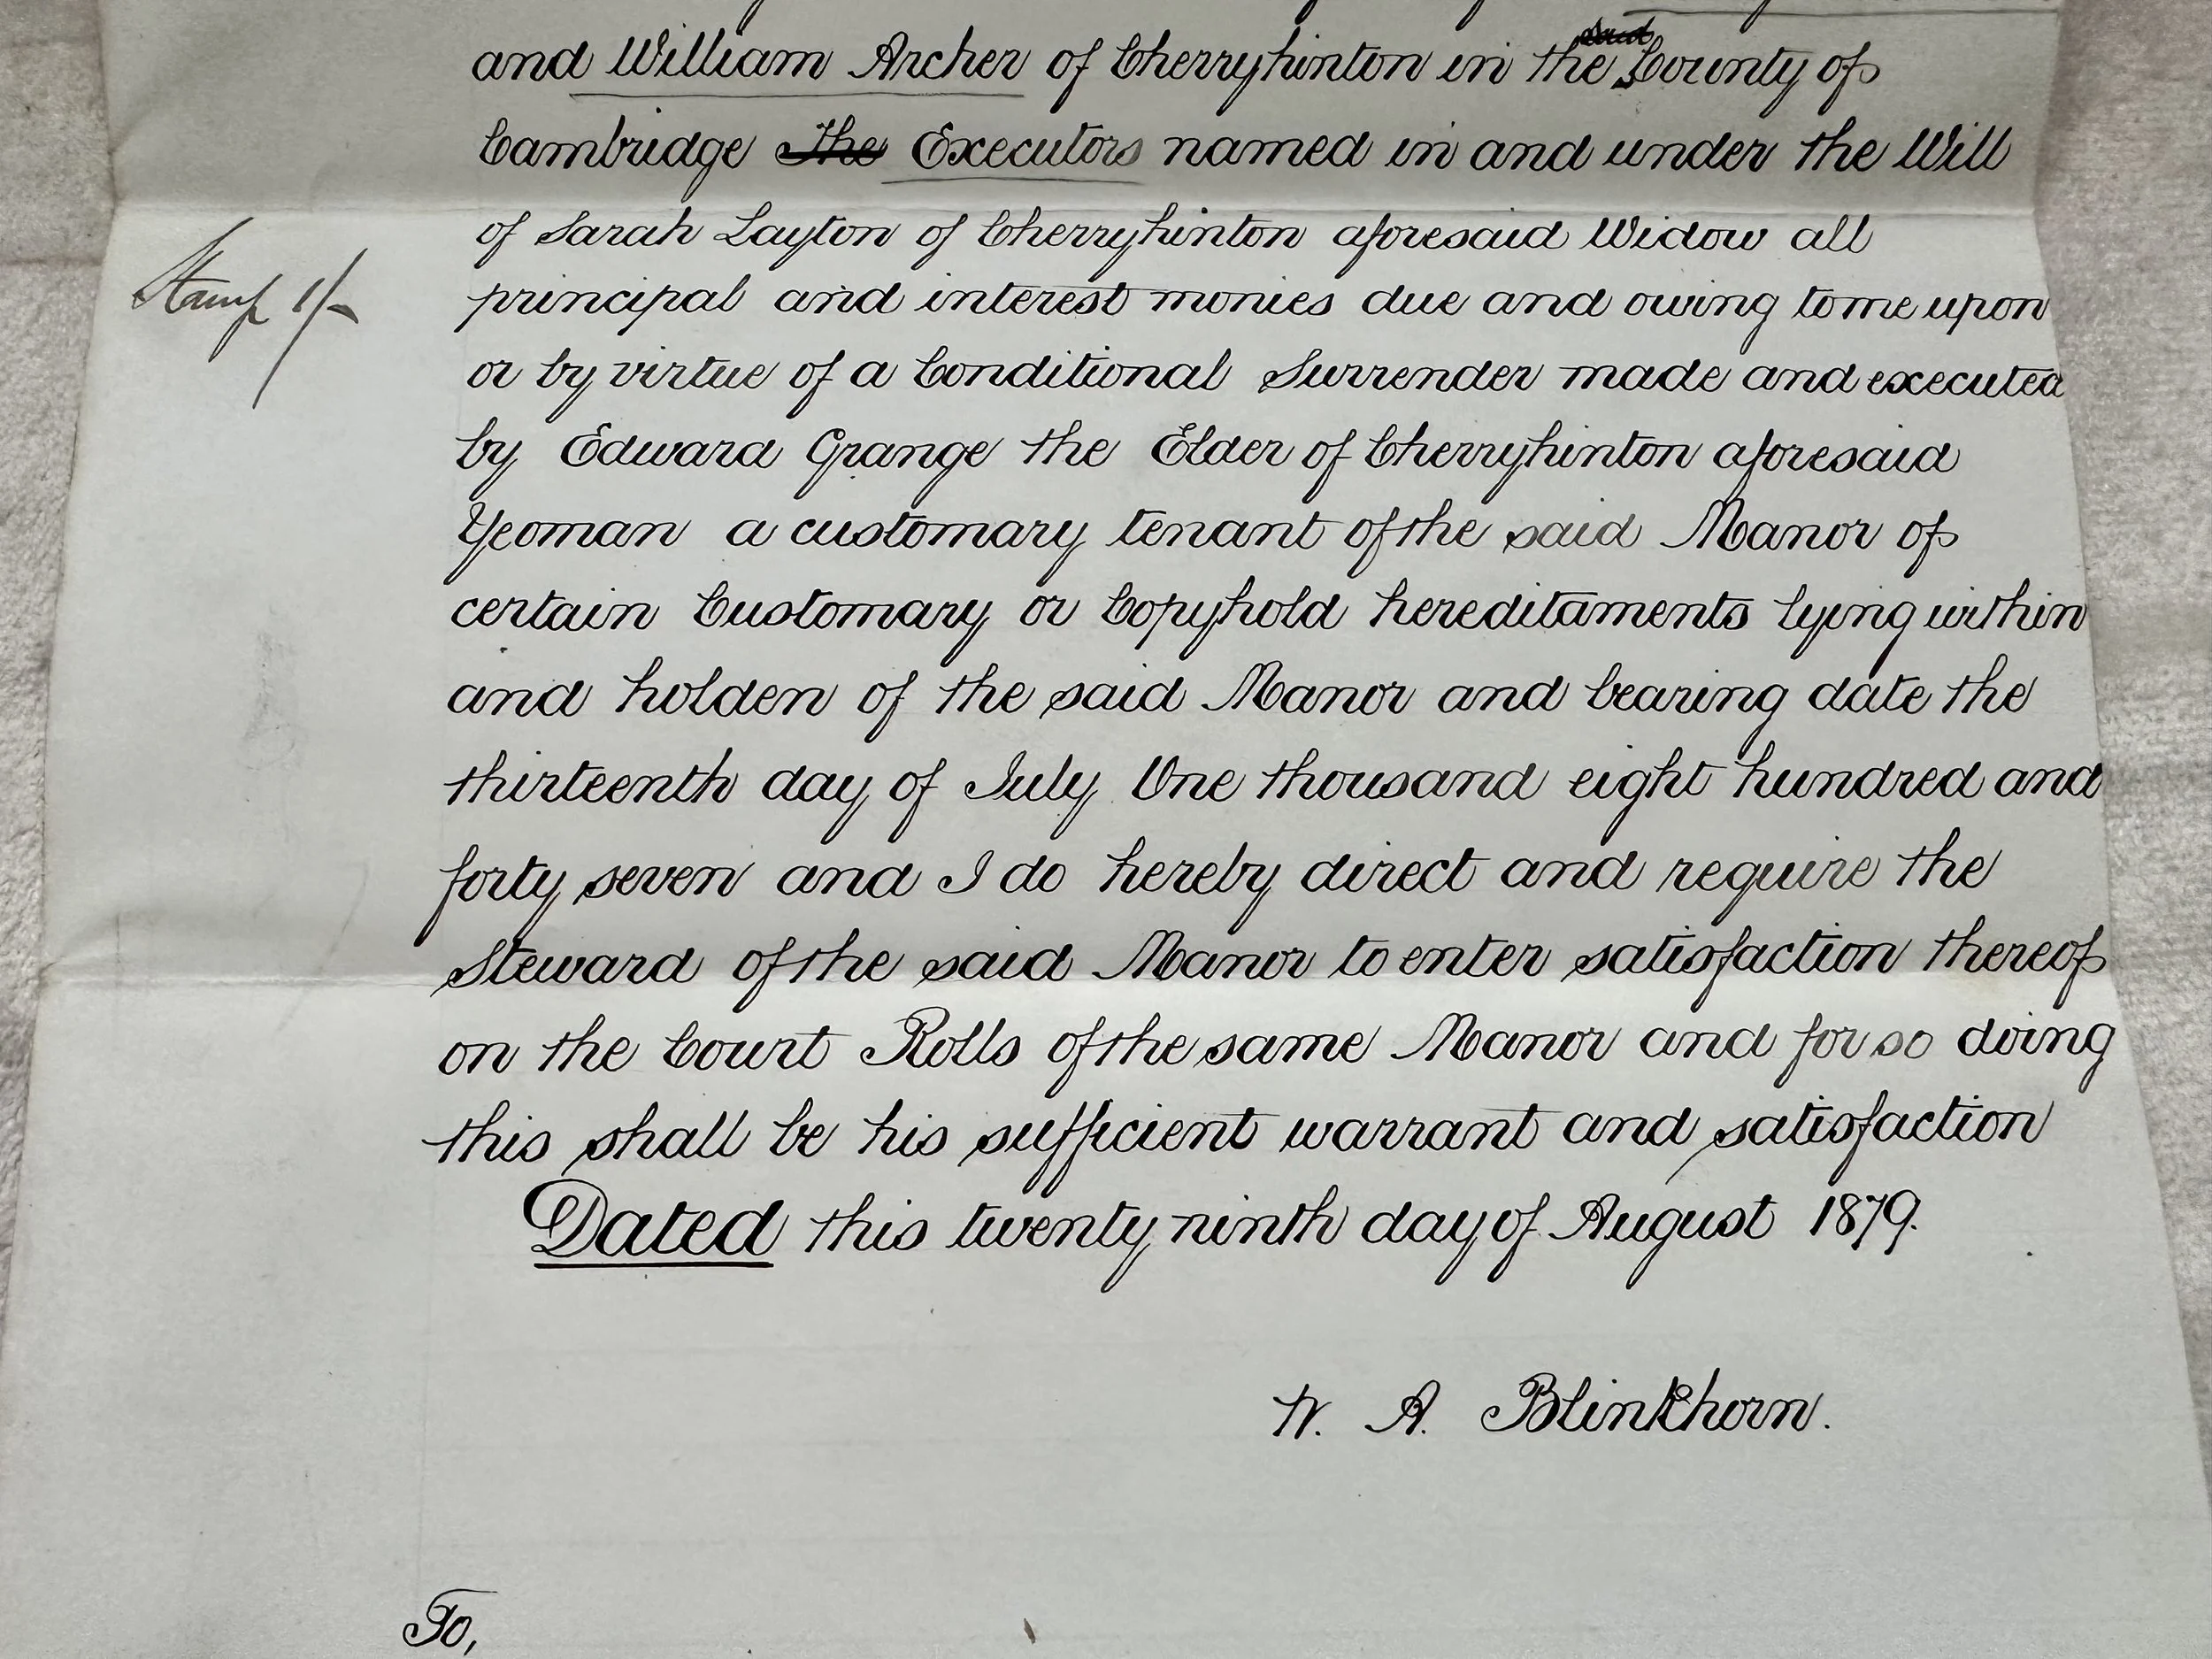 and William Archer of Cherryhinton in the said County of
Cambridge The Executors named in and under the Will
of Sarah Layton of Cherryhinton aforesaid Widow all
Stamp 1/-
principal and interest monies due and owing to me upon
or by virtue of a Conditional Surrender made and executed
by Edward Grange the Elder of Cherryhinton aforesaid
Yeoman a customary tenant of the said Manor of
certain Customary or Copyhold hereditaments lying within
and holden of the said Manor and bearing date the
thirteenth day of July One thousand eight hundred and
forty seven and I do hereby direct and require the
Steward of the said Manor to enter satisfaction thereof
on the Court Rolls of the same Manor and for so doing
this shall be his sufficient warrant and satisfaction
Dated this twenty ninth day of August 1879.
W. A. Blinkhorn.
To,